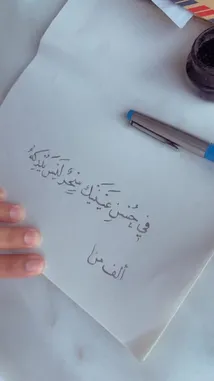 في حُسْنِ عَيْنَيْكِ سِحْرٌ لَيْسَ يُدْرِكُهُ
ألف مرا